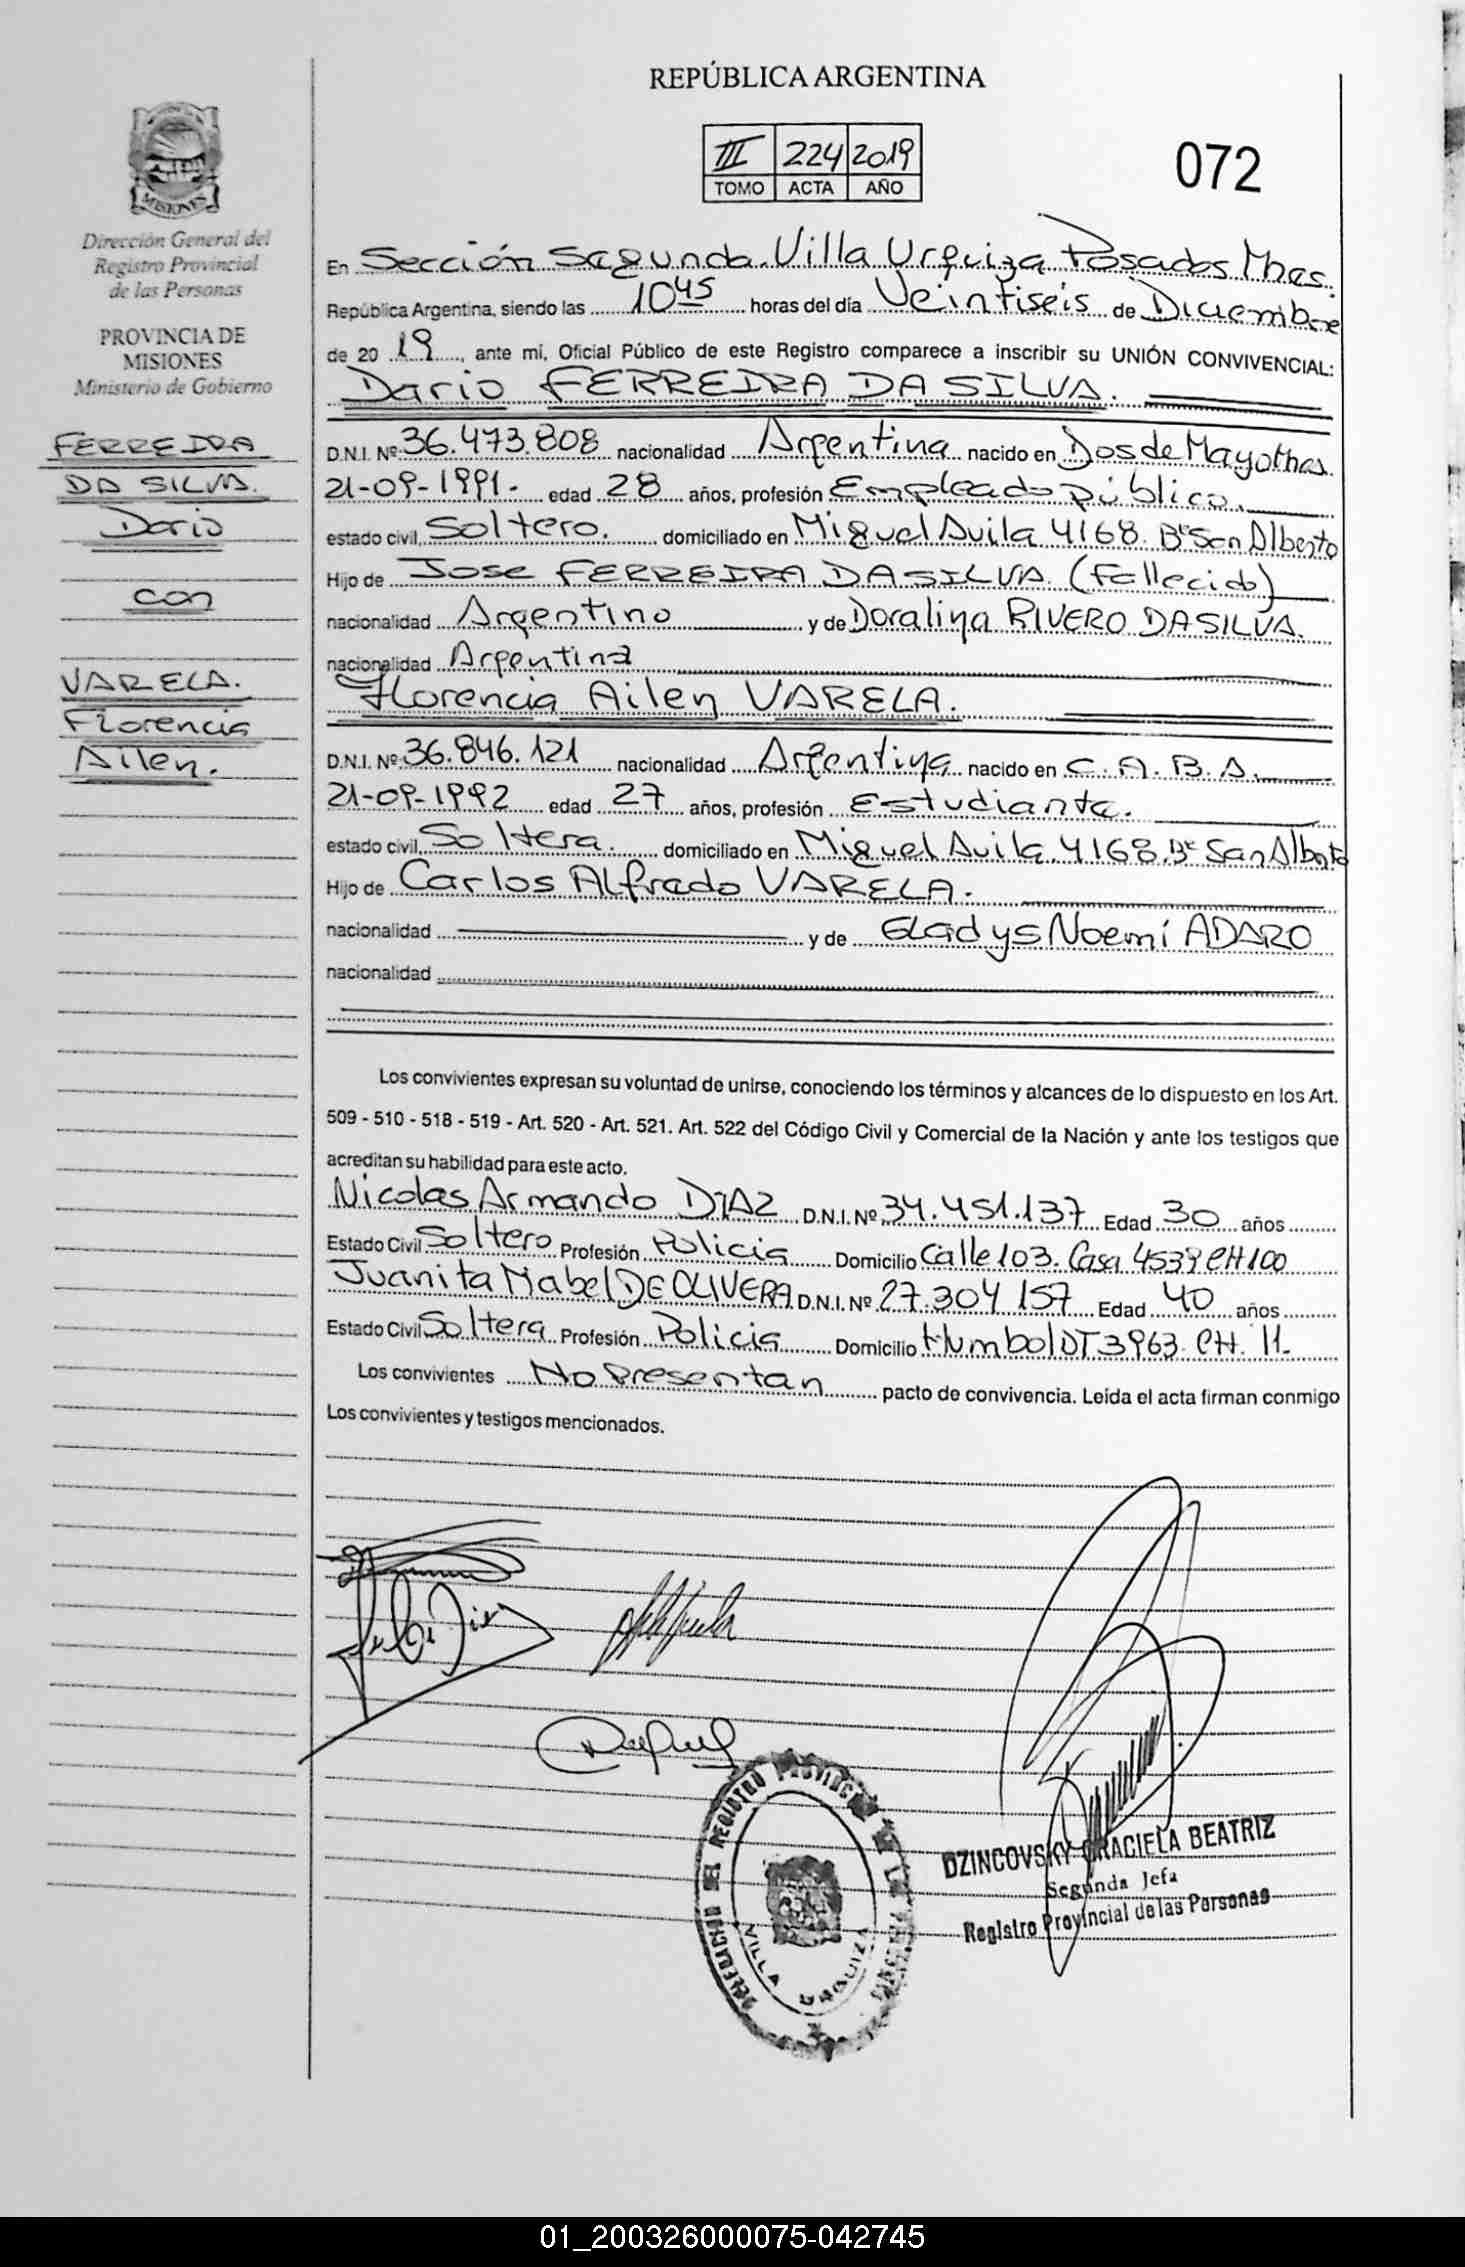 REPÚBLICA ARGENTINA
III 224 2019
TOMO ACTA AÑO
072
MISIONES
Dirección General del
Registro Provincial
de las Personas
PROVINCIA DE
MISIONES
Ministerio de Gobierno
FERREIRA
DA SILVA.
Dario
con
VARELA.
Florencia
Ailen.
En Sección Segunda Villa Urquiza Posadas Mnes.
República Argentina, siendo las 10 45 horas del día Veintiseis de Diciembre
de 20 19, ante mi, Oficial Público de este Registro comparece a inscribir su UNIÓN CONVIVENCIAL:
Dario FERREIRA DA SILVA.
D.N.I. Nº 36.473.808 nacionalidad Argentina nacido en Dos de Mayo Mnes.
21-09-1991- edad 28 años, profesión Empleado público.
estado civil Soltero. domiciliado en Miguel Avila 4168. Bº San Alberto
Hijo de Jose FERREIRA DA SILVA. (Fallecido)
nacionalidad Argentino y de Doralina RIVERO DA SILVA.
nacionalidad Argentina
Florencia Ailen VARELA.
D.N.I. Nº 36.846.121 nacionalidad Argentina nacido en C.A.B.A.
21-09-1992 edad 27 años, profesión Estudiante.
estado civil Soltera. domiciliado en Miguel Avila 4168. Bº San Alberto
Hijo de Carlos Alfredo VARELA.
nacionalidad y de Gladys Noemí ADARO
nacionalidad
Los convivientes expresan su voluntad de unirse, conociendo los términos y alcances de lo dispuesto en los Art.
509 - 510 - 518 - 519 - Art. 520 - Art. 521. Art. 522 del Código Civil y Comercial de la Nación y ante los testigos que
acreditan su habilidad para este acto.
Nicolas Armando DIAZ D.N.I. Nº 34.451.137 Edad 30 años
Estado Civil Soltero Profesión Policia Domicilio Calle 103. Casa 4539 CH 100
Juanita Mabel DE OLIVERA D.N.I. Nº 27.304 157 Edad 40 años
Estado Civil Soltera Profesión Policia Domicilio Humboldt 3963. CH. 11.
Los convivientes No Presentan pacto de convivencia. Leida el acta firman conmigo
Los convivientes y testigos mencionados.
DELEGACION DEL REGISTRO PROVINCIAL DE LAS PERSONAS
VILLA URQUIZA
DZINCOVSKY GRACIELA BEATRIZ
Segunda Jefa
Registro Provincial de las Personas
01_200326000075-042745